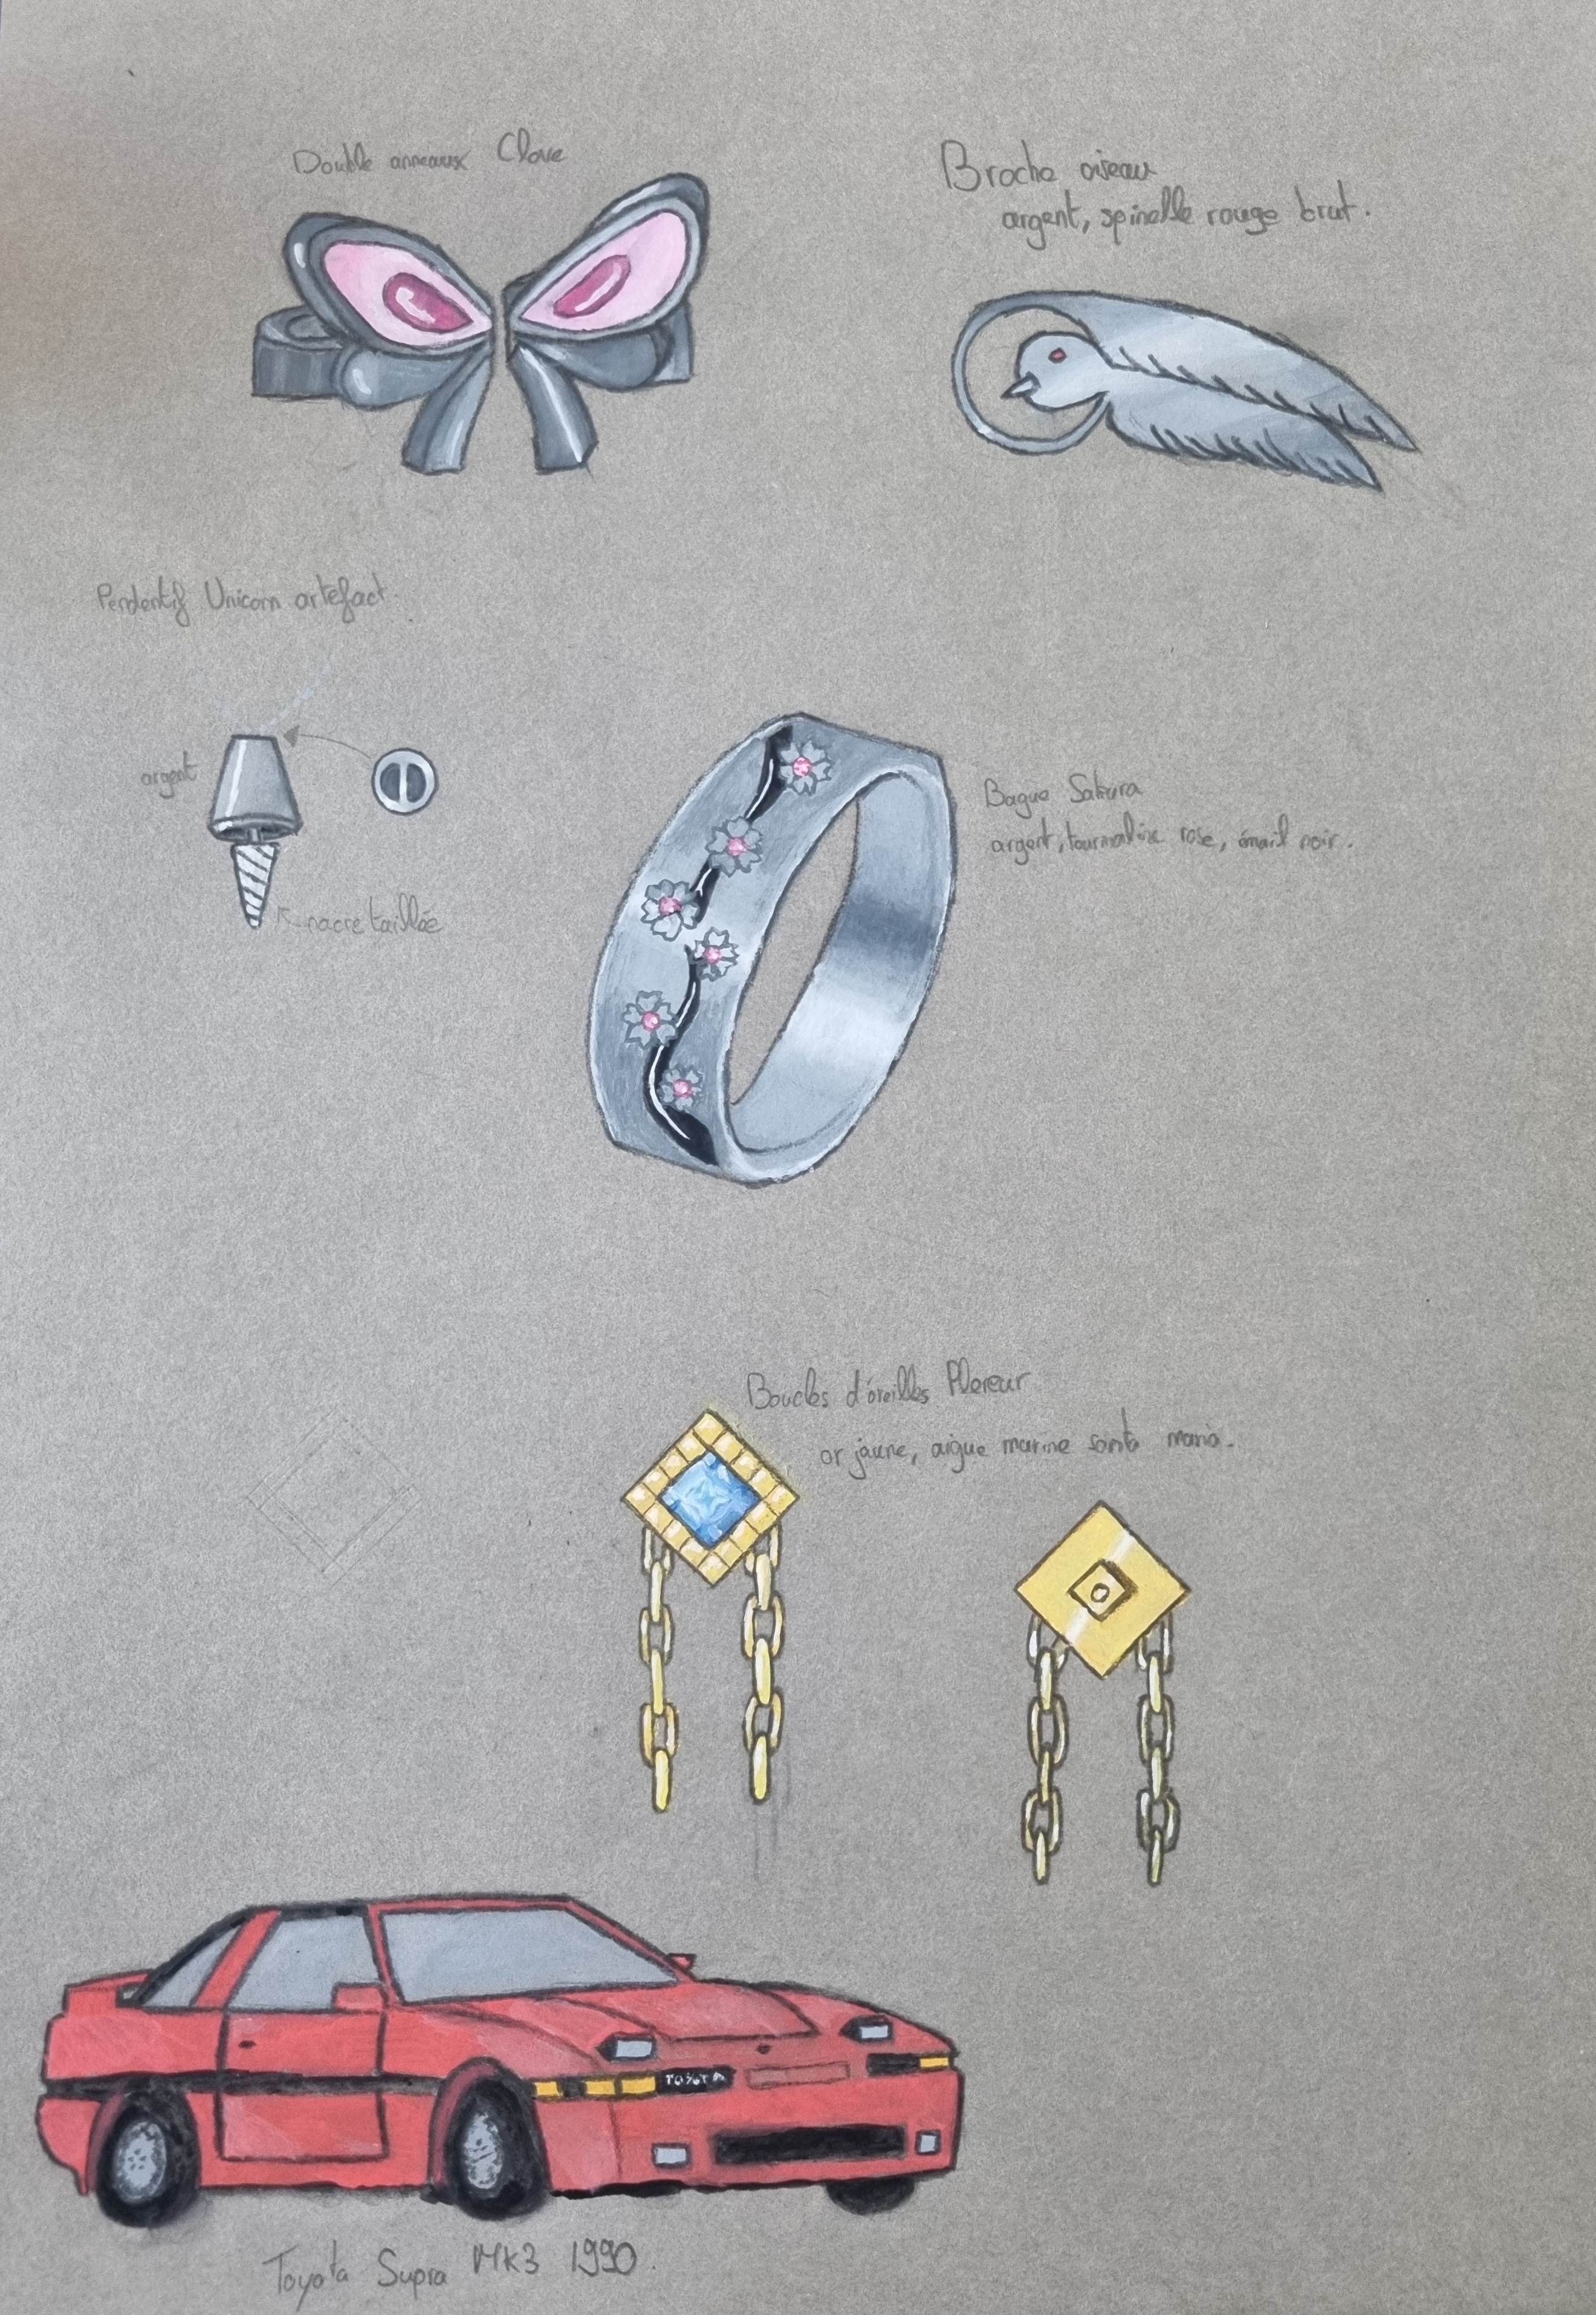 Double anneaux Clove
Broche oiseau
argent, spinelle rouge brut.
Pendentif Unicorn artefact.
argent
nacre taillée
Bague Sakura
argent, tourmaline rose, émail noir.
Boucles d'oreilles Plereur
or jaune, aigue marine santa maria.
TOYOTA
Toyota Supra MK3 1990.